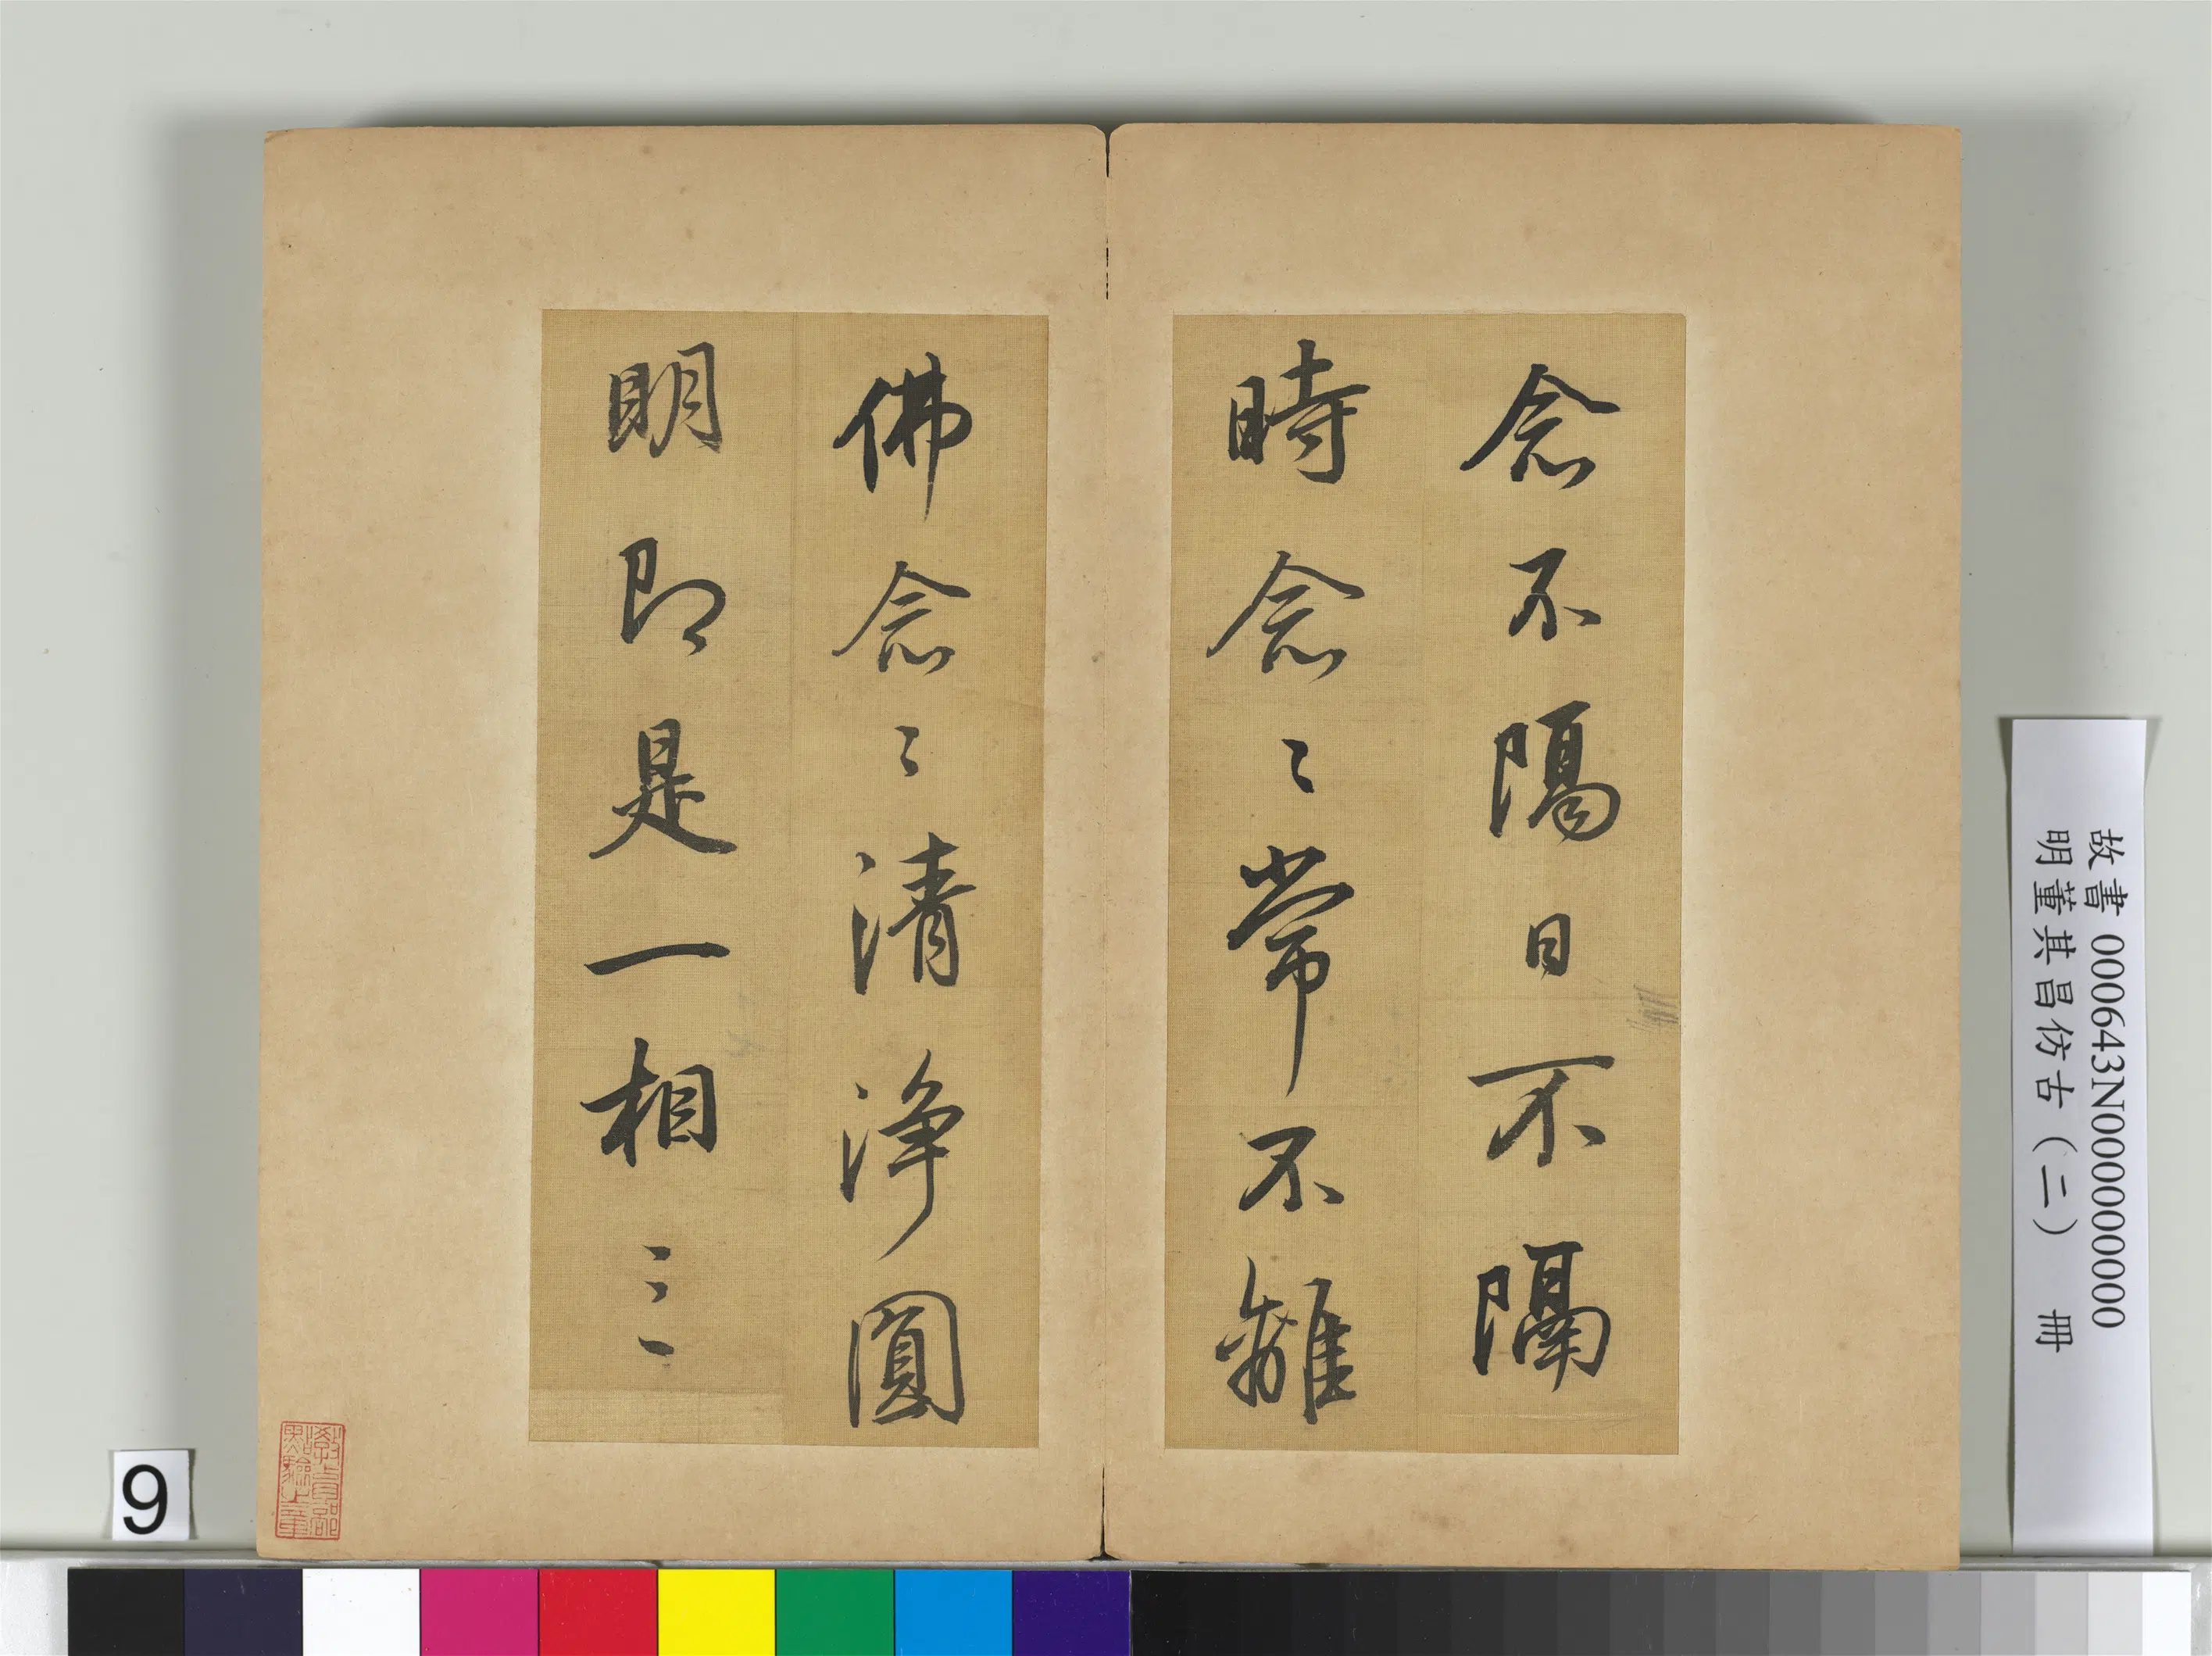 念不隔日不隔
時念〻常不離
佛念〻清淨圓
明即是一相三
教育部
點驗之章
故書 000643N000000000
明董其昌仿古(二) 冊
9